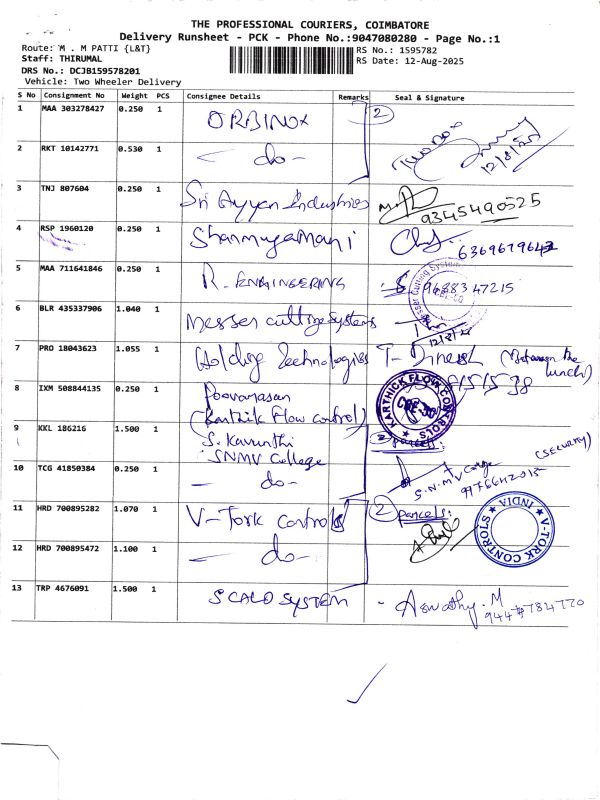 THE PROFESSIONAL COURIERS, COIMBATORE
Delivery Runsheet - PCK - Phone No.:9047080280 - Page No.:1
Route: M . M PATTI {L&T}
RS No.: 1595782
Staff: THIRUMAL
RS Date: 12-Aug-2025
DRS No.: DCJB159578201
Vehicle: Two Wheeler Delivery
S No Consignment No Weight PCS Consignee Details Remarks Seal & Signature
1 MAA 303278427 0.250 1 ORBINOX 2
2 RKT 10142771 0.530 1 - do - 12/8/25
3 TNJ 807604 0.250 1 Sri Ayyan Industries 9345490525
4 RSP 1960120 0.250 1 Shanmugamani 6369679643
5 MAA 711641846 0.250 1 R. ENGINEERING 9688347215
6 BLR 435337906 1.040 1 Messer cutting systems
7 PRO 18043623 1.055 1 Holding Technologies T. Dinesh (Between the lunch)
8 IXM 508844135 0.250 1 Poovarasan
(Karthik Flow control) KARTHICK FLOW CONTROLS
9 KKL 186216 1.500 1 S. Kavinthi
SNMV College 2 parcels:
10 TCG 41850384 0.250 1 - do - S.N.M.V College (SECURITY)
11 HRD 700895282 1.070 1 V-Tork controls 2 parcels:
V-TORK CONTROLS INDIA
12 HRD 700895472 1.100 1 - do -
13 TRP 4676091 1.500 1 SCALO SYSTEM - Aswathy. M